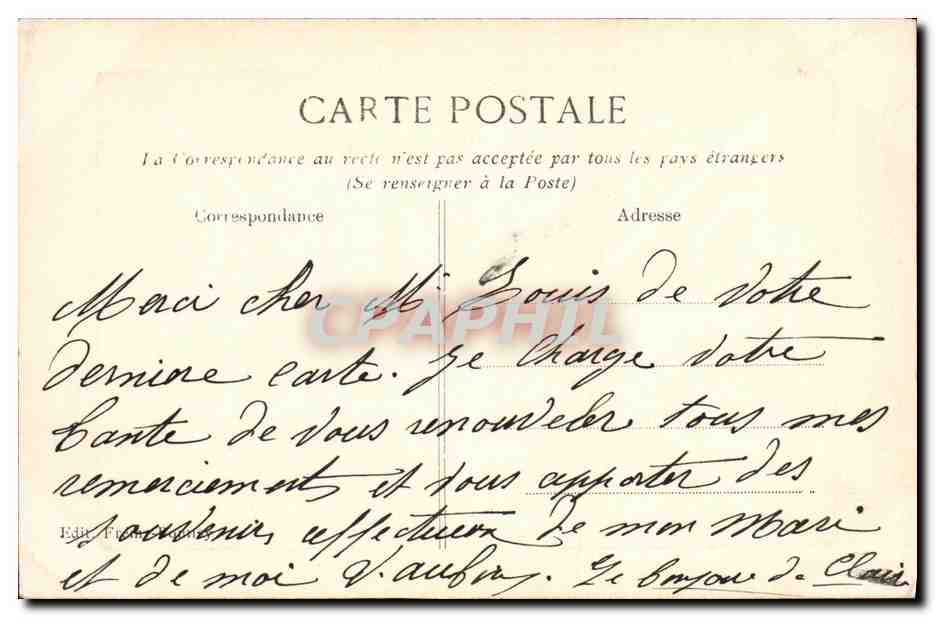 CARTE POSTALE
La Correspondance au recto n'est pas acceptée par tous les pays étrangers
(Se renseigner à la Poste)
Correspondance Adresse
Merci cher Mr Louis de votre
CPAPHIL
derniere carte. Je charge votre
tante de vous renouveler tous mes
remerciements et vous apporter des
souvenirs affectueux de mon Mari
Edit.
et de moi V. Le bonjour de Clais